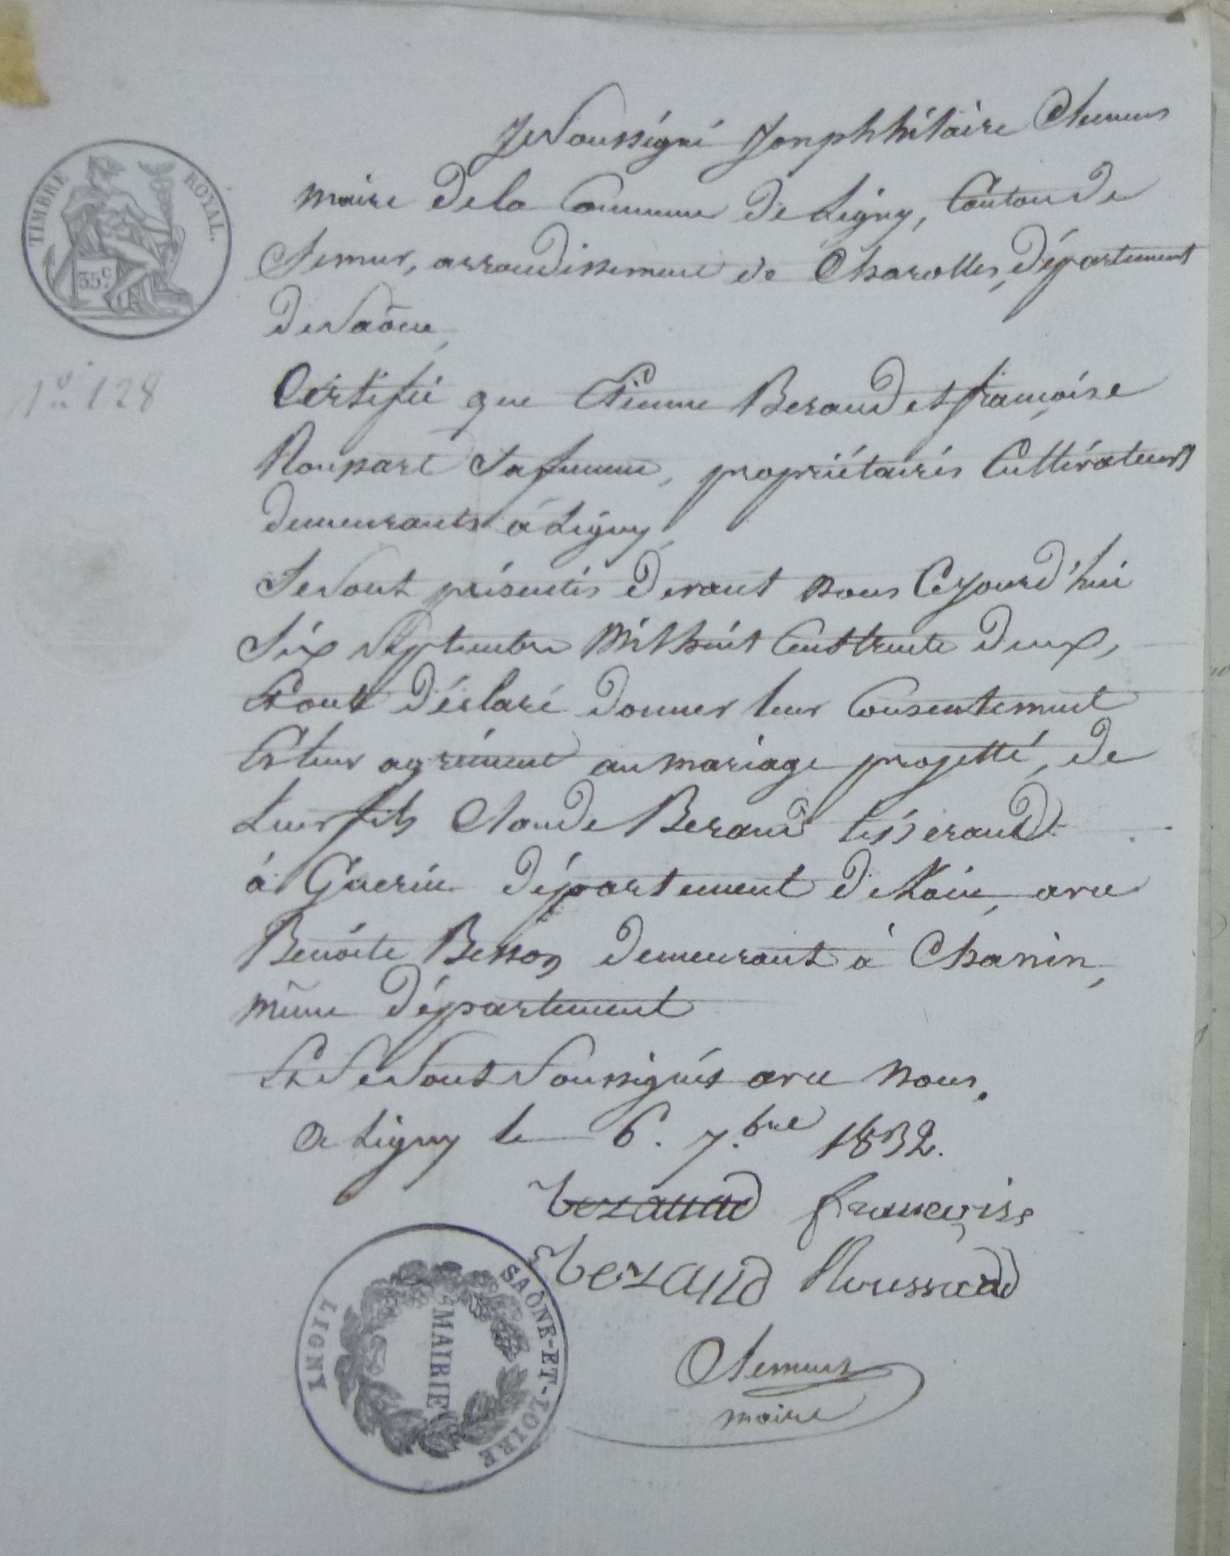 Je Soussigné Josph hilaire Clemens
maire De la Commune De Ligny, Canton De
Semur, arrondissement de Charolles, département
De Saône,
TIMBRE ROYAL.
35c.
128
Certifie que Etienne Beraud et françoise
Sa femme, propriétaires Cultivateurs
Demeurants à Ligny,
Se Sont présentés Devant nous Cejourd'hui
Six Septembre Mil huit Cent trente Deux,
Et ont Déclaré Donner leur Consentement
Et leur agrément au mariage projetté, de
Leur fils Claude Beraud tisserand
à département De avec
Benoite Besson Demeurant à
même Département
Et Se Sont Soussignés avec nous.
A Ligny le 6. 7.bre 1832.
beraud françoise
beraud
Clemens
maire
LIGNY
MAIRIE
SAÔNE-ET-LOIRE